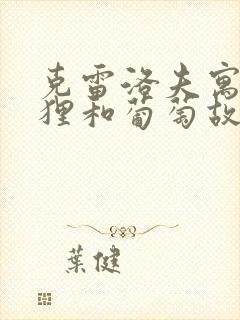 克雷洛夫寓
狸和葡萄故
葉健